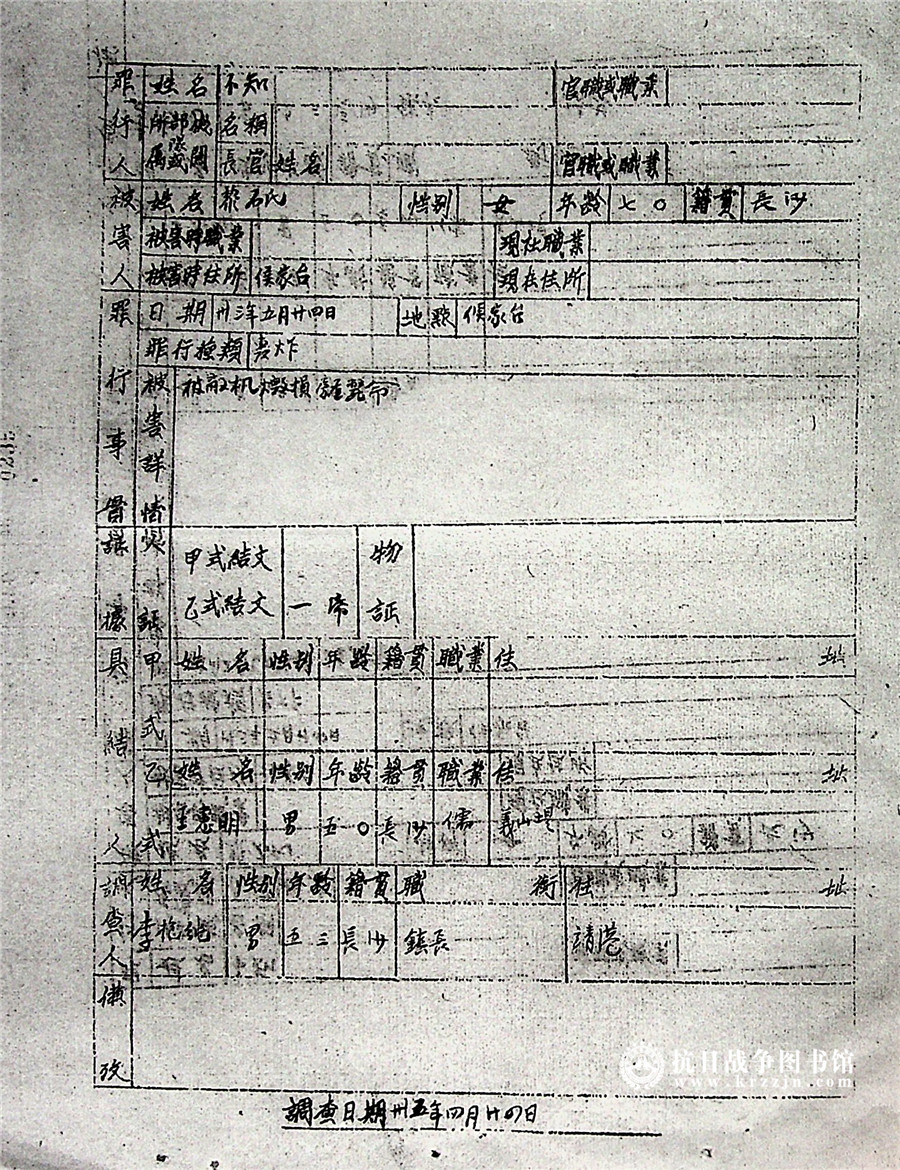 罪行人 姓名 不知 官職或職業
所屬部隊或機關 名稱
長官 姓名 官職或職業
被害人 姓名 石氏 性别 女 年齡 七〇 籍貫 長沙
被害時職業 現在職業
被害時住所 侯家台 現在住所
罪行事實 日期 卅三年五月廿四日 地點 侯家台
罪行種類 轟炸
被害詳情 被敵机
證據 甲式結文
乙式結文 一 帋 物証
具結人 甲式 姓名 性别 年齡 籍貫 職業 住址
乙式 姓名 性别 年齡 籍貫 職業 住址
惠明 男 五〇 長沙 儒 義山
調查人 姓名 性别 年齡 籍貫 職銜 住址
李 純 男 五三 長沙 鎮長 靖港
備攷
調查日期卅五年四月廿四日
抗日战争图书馆
www.krzzjn.com